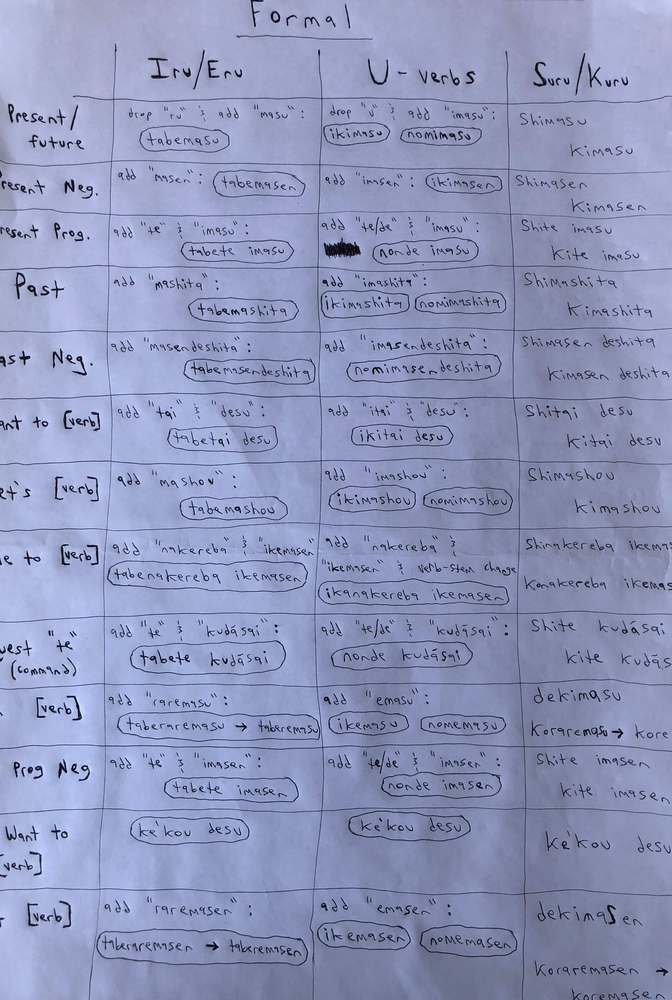 Formal
Iru/Eru U-verbs Suru/Kuru
Present/
future
drop "ru" & add "masu":
tabemasu
drop "u" & add "imasu":
ikimasu nomimasu
Shimasu
Kimasu
resent Neg.
add "masen": tabemasen
add "imasen": ikimasen
Shimasen
Kimasen
resent Prog.
add "te" & "imasu":
tabete imasu
add "te/de" & "imasu":
nonde imasu
Shite imasu
Kite imasu
Past
add "mashita":
tabemashita
add "imashita":
ikimashita nomimashita
Shimashita
Kimashita
ast Neg.
add "masendeshita":
tabemasendeshita
add "imasendeshita":
nomimasendeshita
Shimasen deshita
Kimasen deshita
ant to [verb]
add "tai" & "desu":
tabetai desu
add "itai" & "desu":
ikitai desu
Shitai desu
Kitai desu
et's [verb]
add "mashou":
tabemashou
add "imashou":
ikimashou nomimashou
Shimashou
Kimashou
e to [verb]
add "nakereba" & "ikemasen"
tabenakereba ikemasen
add "nakereba" &
"ikemasen" & verb-stem change
ikanakereba ikemasen
Shinakereba ikemas
Konakereba ikemas
uest "te"
(command)
add "te" & "kudásai":
tabete kudásai
add "te/de" & "kudásai":
nonde kudásai
Shite kudásai
kite kudás
[verb]
add "raremasu":
taberaremasu → taberemasu
add "emasu":
ikemasu nomemasu
dekimasu
Koraremasu → kore
Prog Neg
add "te" & "imasen":
tabete imasen
add "te/de" & "imasen":
nonde imasen
Shite imasen
kite imasen
Want to
[verb]
ke'kou desu
ke'kou desu
ke'kou desu
[verb]
add "raremasen":
taberaremasen → taberemasen
add "emasen":
ikemasen nomemasen
dekimasen
Koraremasen →
koremasen